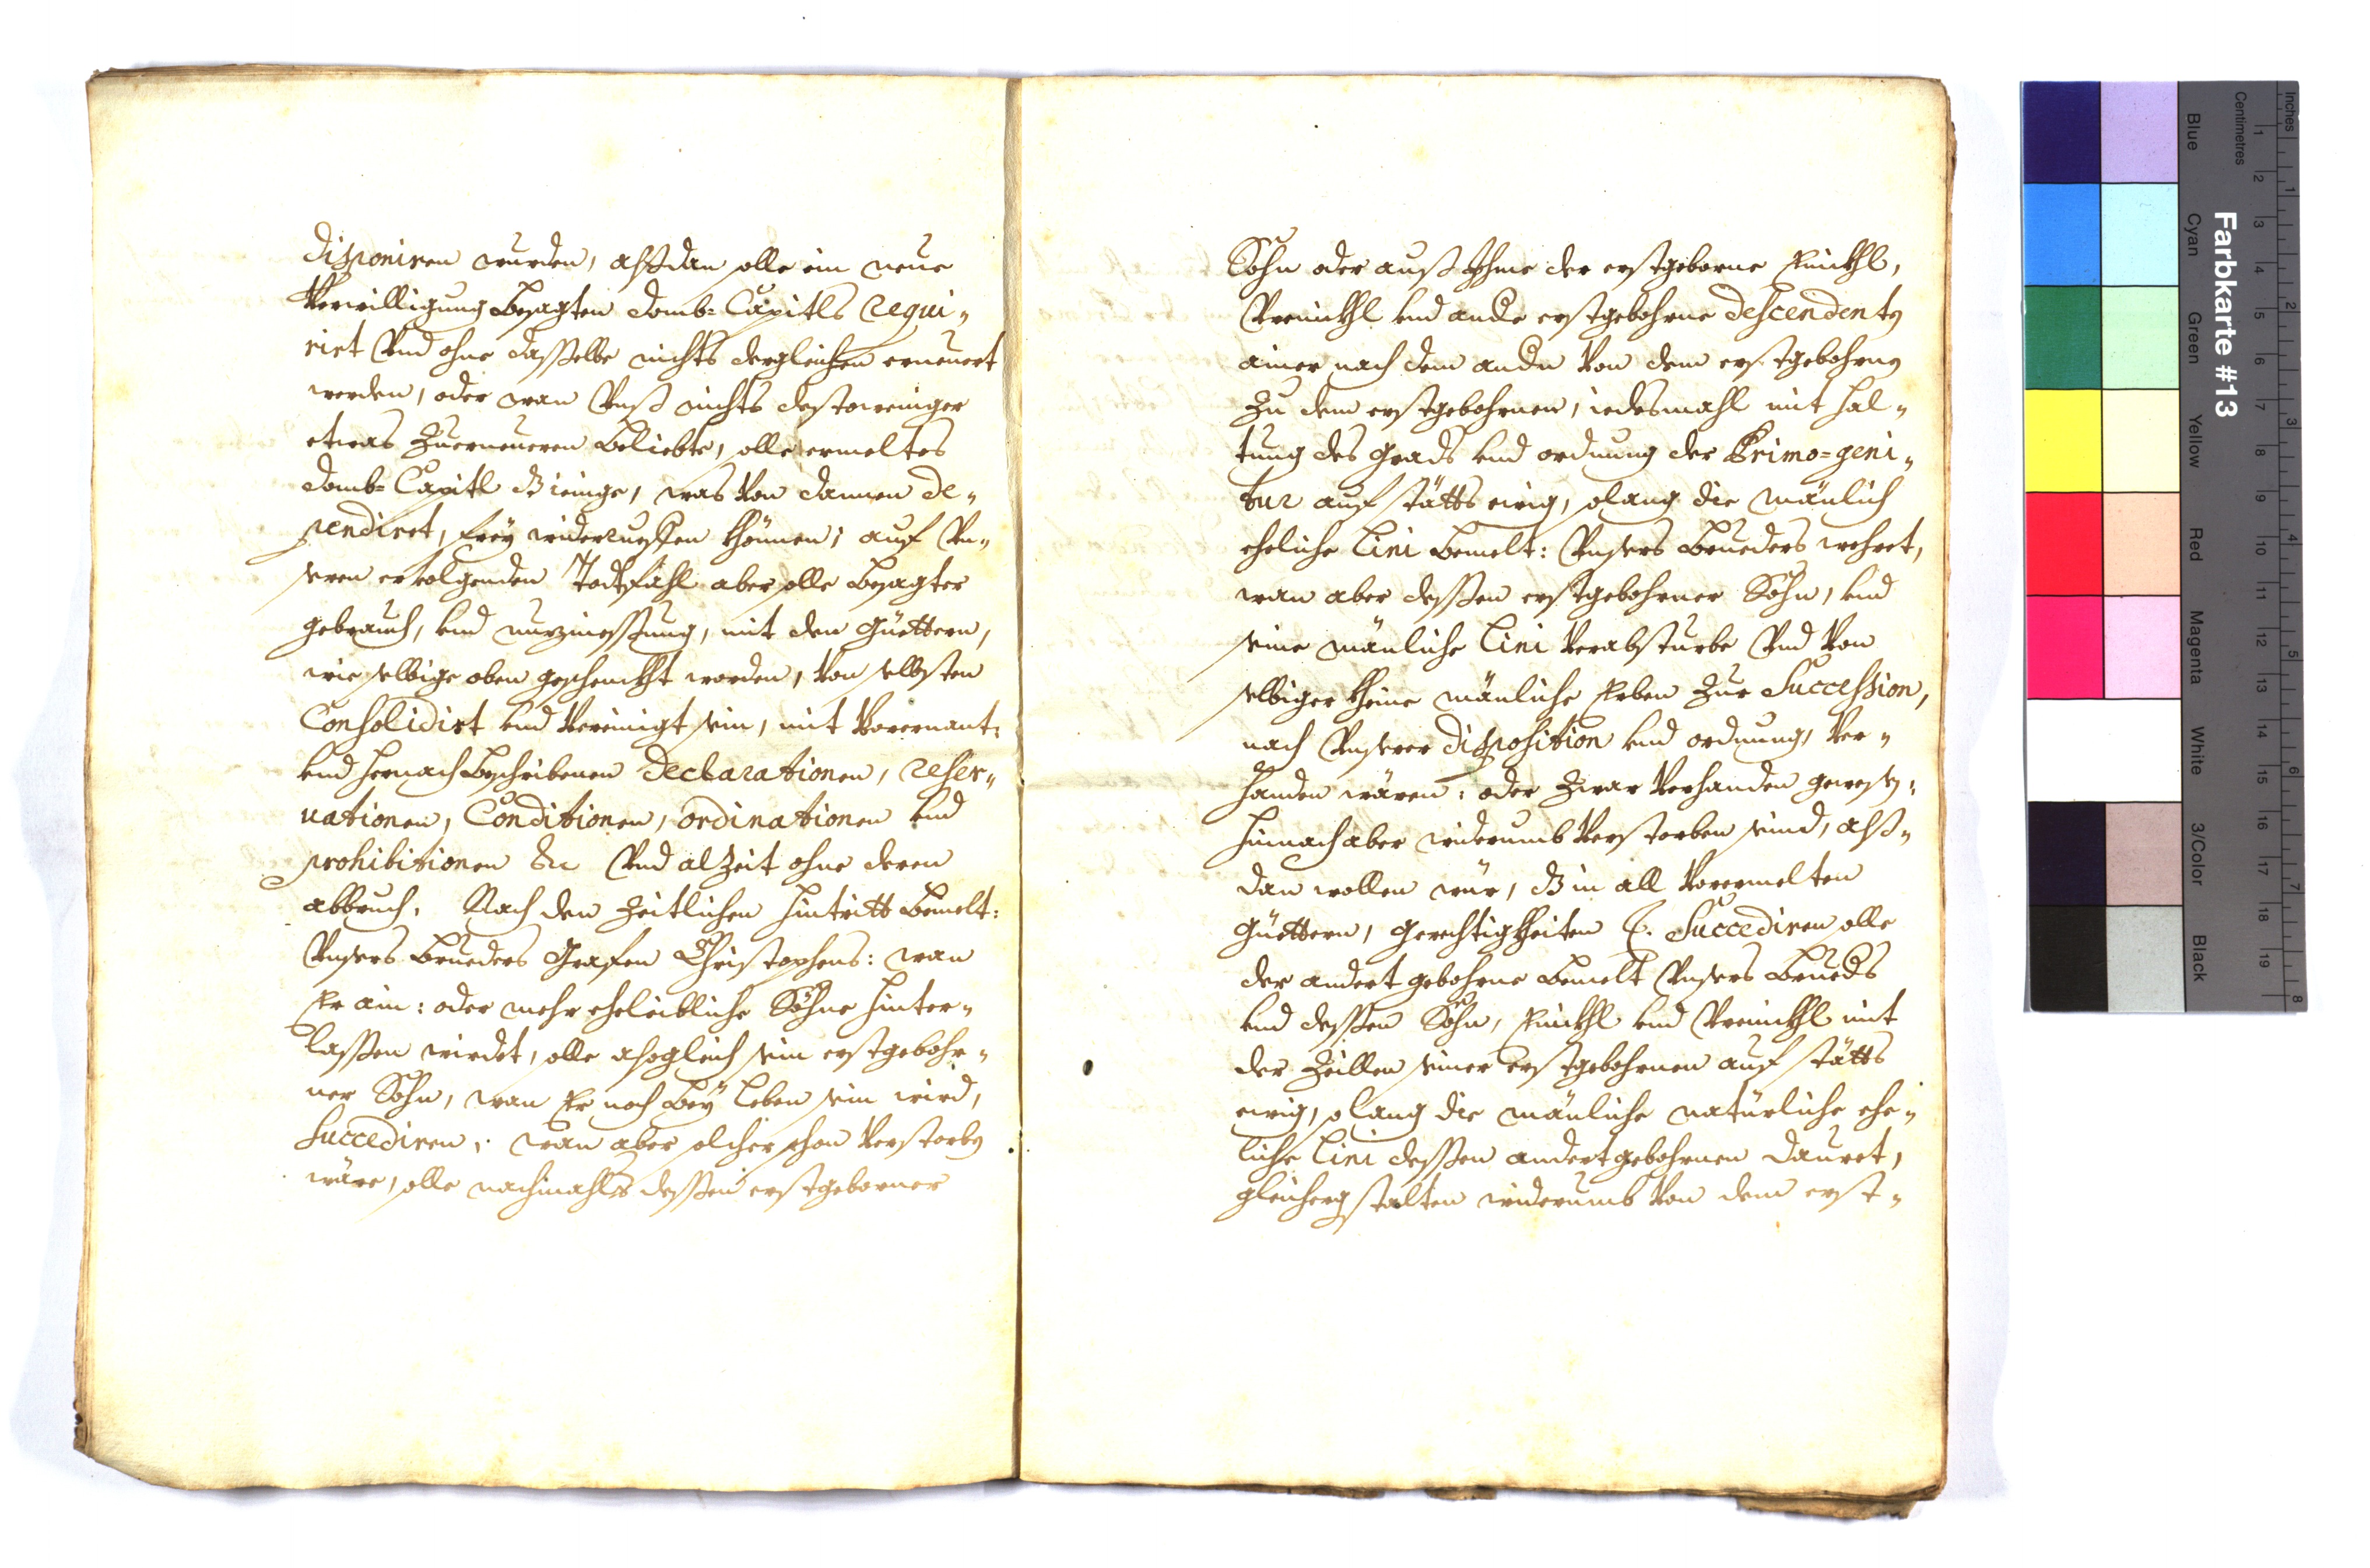 disponiren wurden, alßdan solle ein neue
Verwilligung besagten domb: Capitls requi-
rirt Und ohne dasselbe nichts dergleichen erneuert
werden, oder wan Unß nichts destoweniger
etwas Zuerneueren beliebte, solle ermeltes
domb: Capitl dz ienige, was Von dannen de-
pendiret, frey widerrueffen khönnen; auf Un-
seren erfolgenden Todtsfahl aber solle besagter
gebrauch, und nuzniessung, mit den güettern,
wie selbige oben geschenkht worden, Von selbsten
Consolidirt und Vereinigt sein, mit Vorernant:
und hernach beschribenen declarationen, reser-
uationen, Conditionen, ordinationen und
prohibitionen &c Und alzeit ohne deren
abbruch. Nach den Zeitlichen hintritt bemelt:
Unsers brueders Grafen Christophens: wan
Er ain: oder mehr eheleibliche Söhne hinter-
lassen wirdet, solle alsogleich sein erstgebohr-
ner Sohn, wan Er noch bey leben sein wird,
Succediren; wan aber solcher schon Verstorben
wäre, solle nachmahls dessen erstgeborner
Sohn oder auß Ihme der erstgeborne Enickhl,
Vrenickhl und andere erstgebohrne descendenten
ainer nach dem andern Von dem erstgebohrnen
Zu dem erstgebohrnen, iedesmahl mit hal-
tung des grads und ordnung der Primo=geni-
tur auf stätts ewig, solang die mänlich
eheliche Lini bemelt: Unsers brueders wehret,
wan aber dessen erstgebohrner Sohn, und
seine mänliche Lini Verabsturbe Und Von
selbiger kheine mänliche Erben Zur Succession,
nach Unserer disposition und ordnung, Ver-
handen wären: oder Zwar Verhanden gewesen:
hinnach aber widerumb Verstorben seind, alß-
dan wollen wür, dz in all Vorermelten
güettern, gerechtigkheiten &c. Succediren solle
der andert gebohrne bemelt Unsers brueders
und dessen Sohn, Enickhl und Vrenickhl mit
der Zeillen seiner erstgebohrnen auf stätts
ewig, solang die mänliche natürliche ehe-
liche Lini dessen andertgebohrnen dauret,
gleichergstalten widerumb Von dem erst-
Farbkarte #13
Blue
Cyan
Green
Yellow
Red
Magenta
White
3/Color
Black
Centimetres
1 2 3 4 5 6 7 8 9 10 11 12 13 14 15 16 17 18 19
Inches
1 2 3 4 5 6 7 8